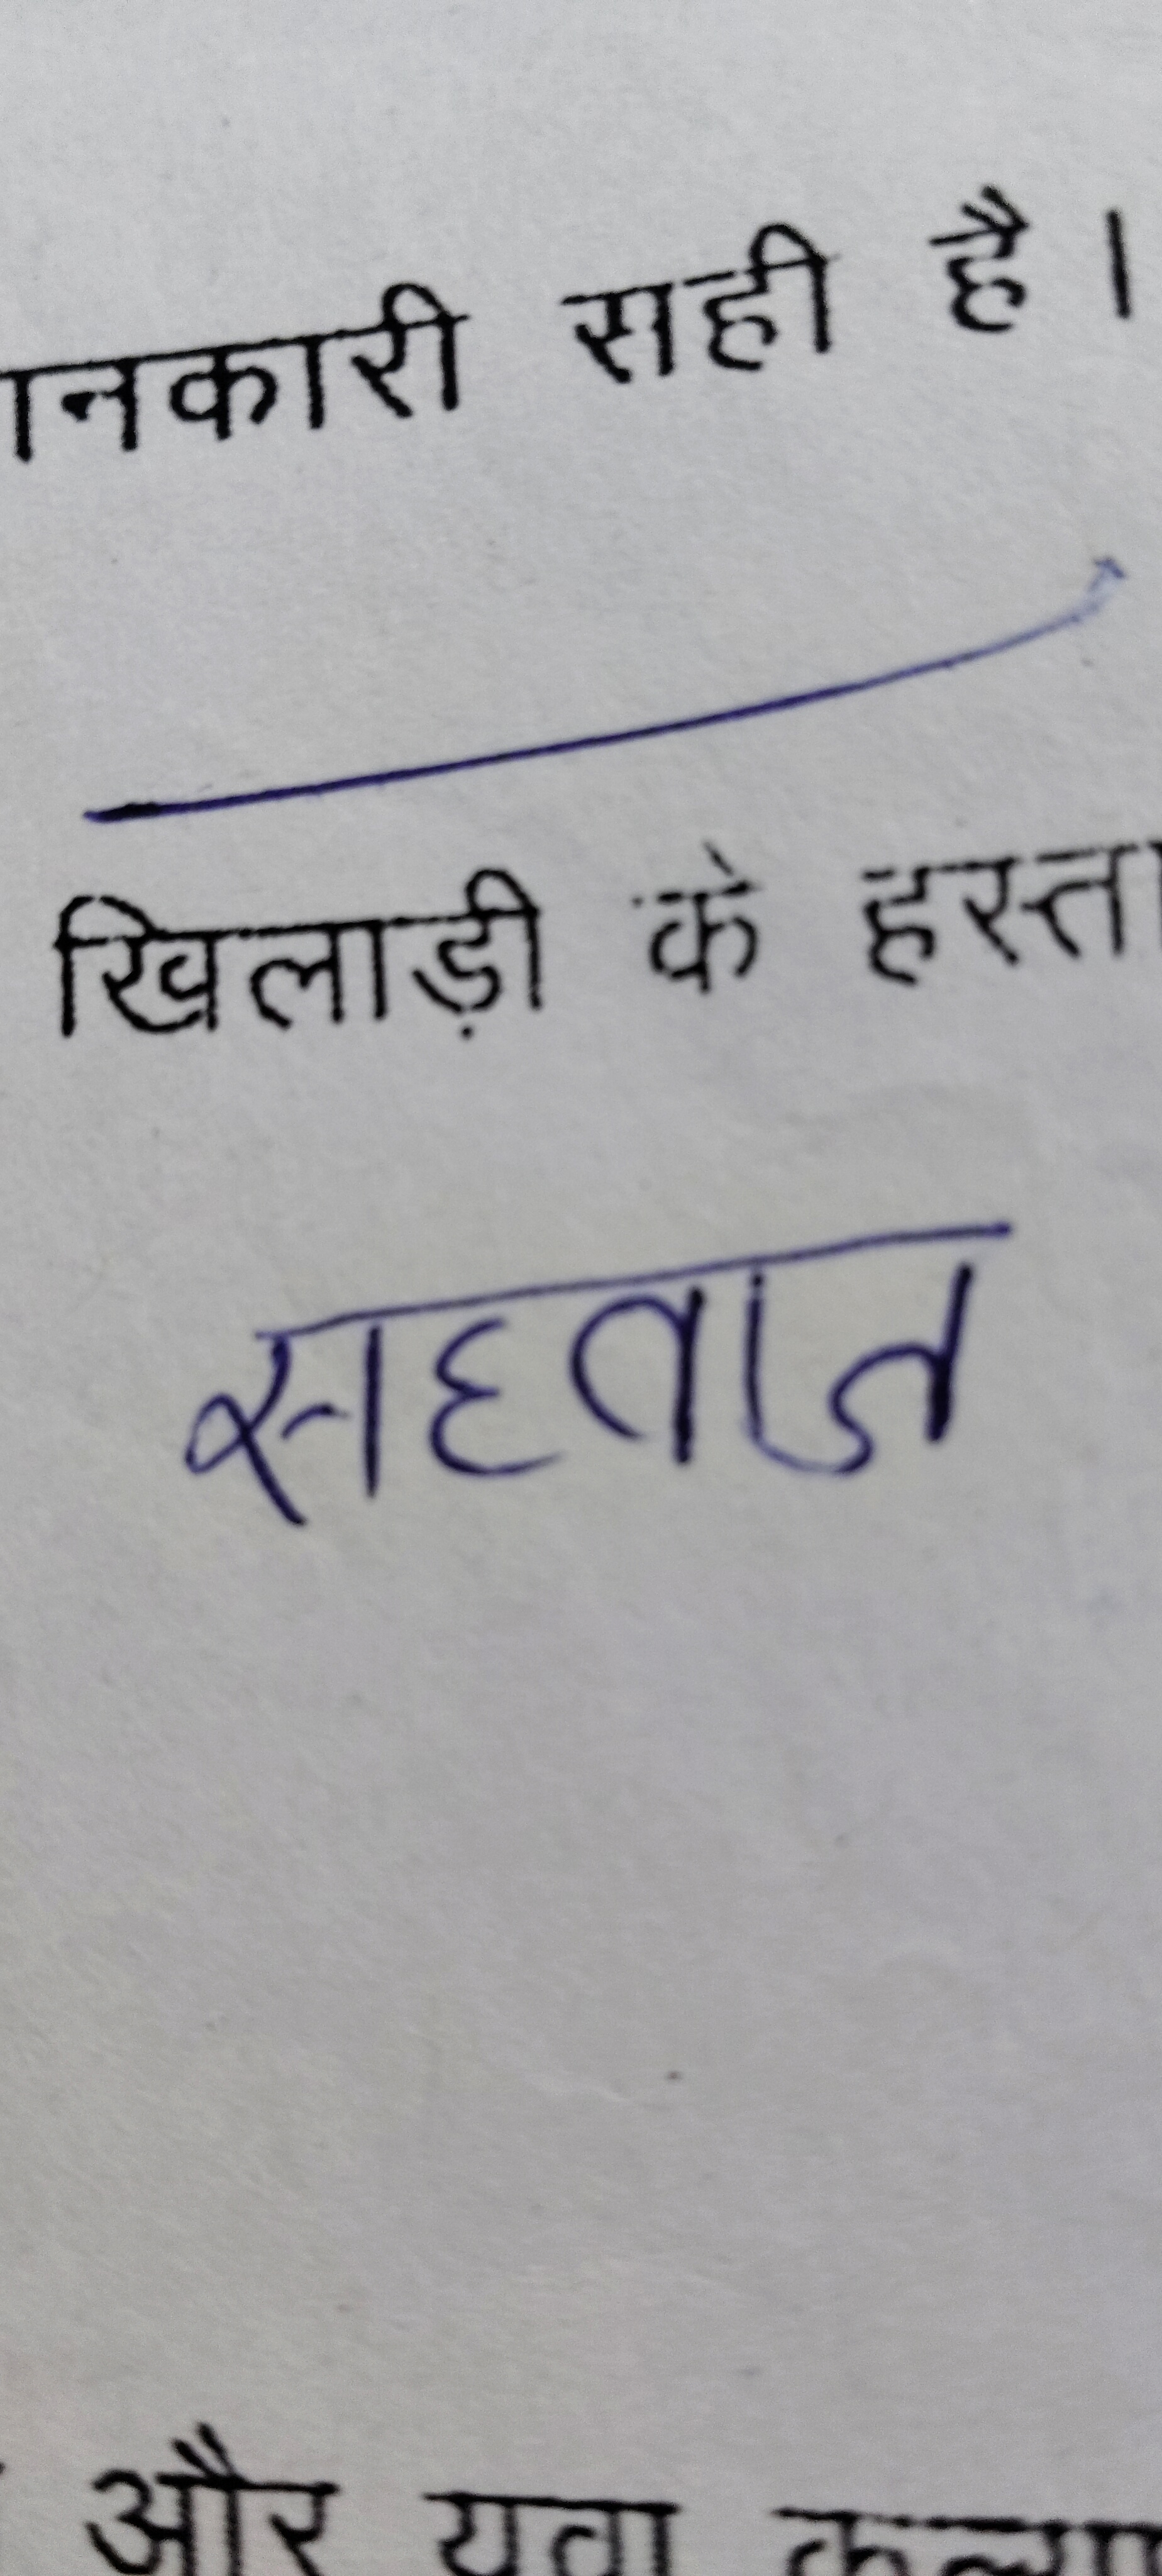 ानकारी सही है।
खिलाड़ी के हस्ता
सहताज
और युवा कल्या